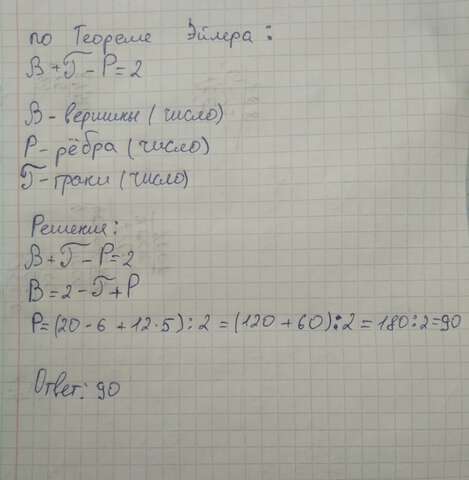 по Теореме Эйлера:
В+Г-Р=2
В - вершины (число)
Р - рёбра (число)
Г - грани (число)
Решение:
В+Г-Р=2
В=2-Г+Р
Р=(20·6+12·5):2=(120+60):2=180:2=90
Ответ: 90